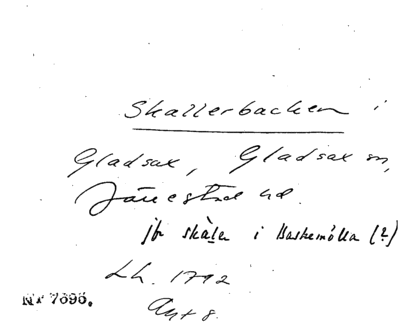 Skallerbacken i
Gladsax, Gladsax sn,
Järrestad hd.
jfr skåla i Baskemölla (?)
Lh. 1792
Akt 8.
NY 7696.